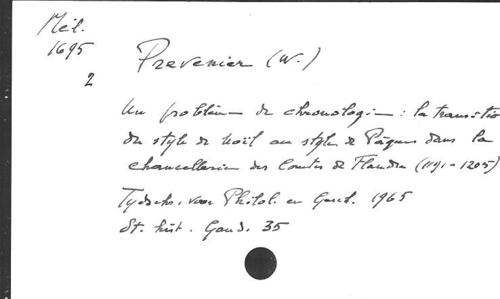 Mél.
1695
2
Prevenier (W.)
Un problème de chronologie : la transition
du style de Noël au style de Pâques dans la
chancellerie des Comtes de Flandre (1191-1205)
Tydschr. voor Philol. en Gesch. 1965
St. hist. Gand. 35